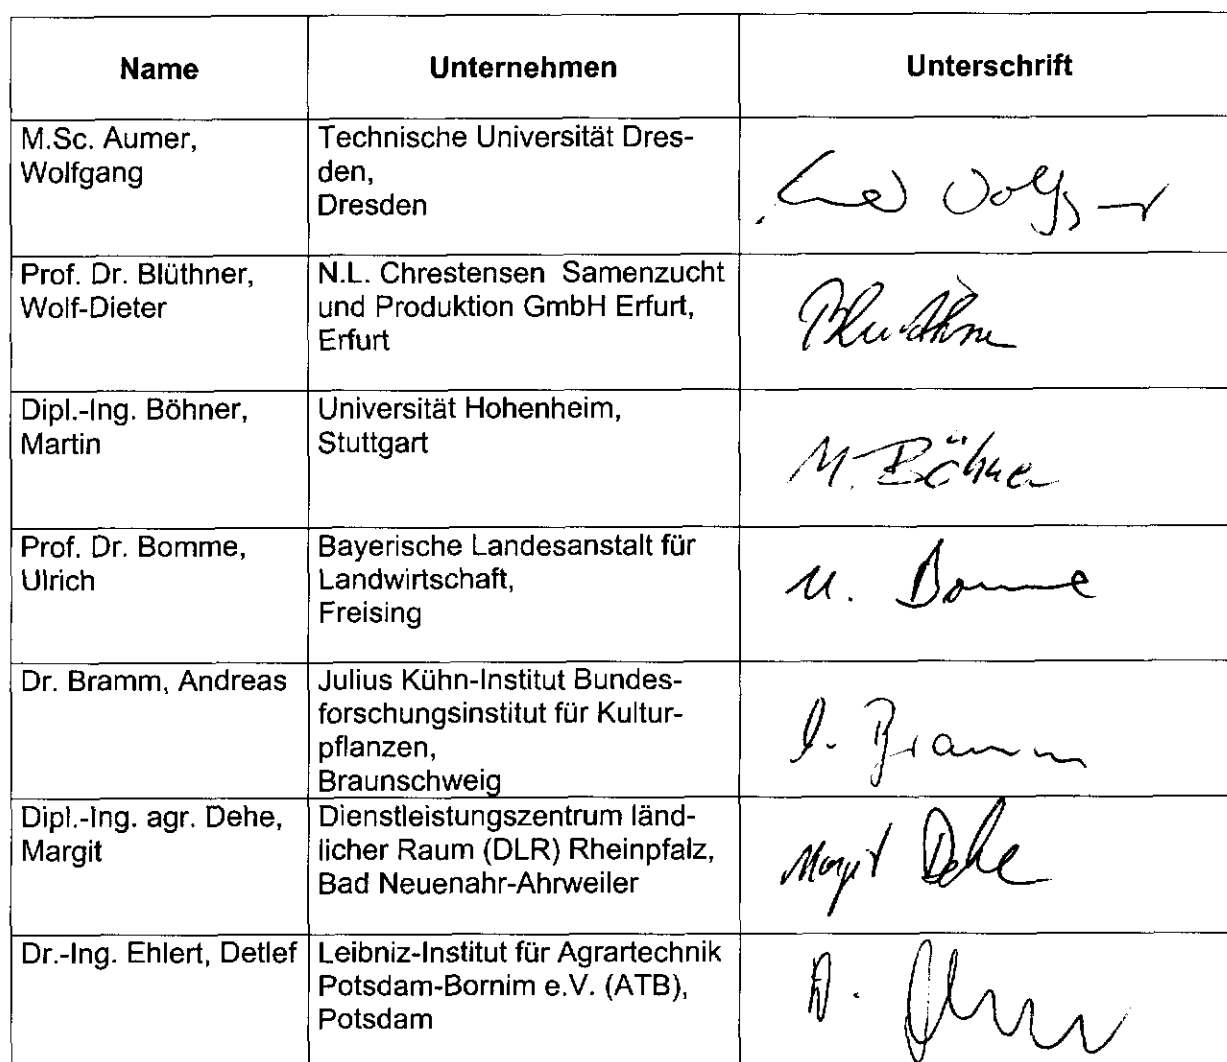 Name
Unternehmen
Unterschrift
M.Sc. Aumer,
Wolfgang
Technische Universität Dres-
den,
Dresden
Prof. Dr. Blüthner,
Wolf-Dieter
N.L. Chrestensen Samenzucht
und Produktion GmbH Erfurt,
Erfurt
Blüthner
Dipl.-Ing. Böhner,
Martin
Universität Hohenheim,
Stuttgart
M. Böhner
Prof. Dr. Bomme,
Ulrich
Bayerische Landesanstalt für
Landwirtschaft,
Freising
U. Bomme
Dr. Bramm, Andreas
Julius Kühn-Institut Bundes-
forschungsinstitut für Kultur-
pflanzen,
Braunschweig
A. Bramm
Dipl.-Ing. agr. Dehe,
Margit
Dienstleistungszentrum länd-
licher Raum (DLR) Rheinpfalz,
Bad Neuenahr-Ahrweiler
Margit Dehe
Dr.-Ing. Ehlert, Detlef
Leibniz-Institut für Agrartechnik
Potsdam-Bornim e.V. (ATB),
Potsdam